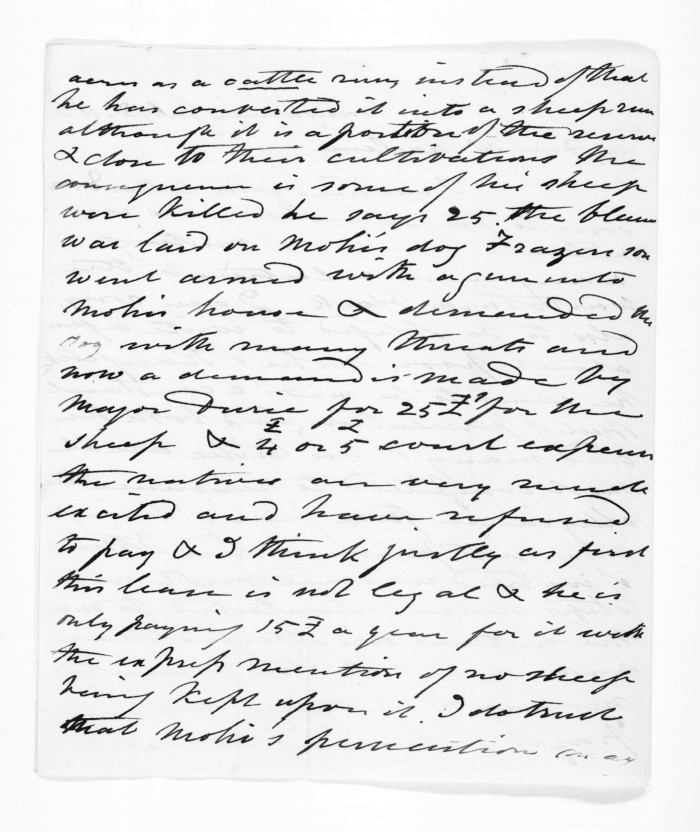 acres as a cattle run, instead of that
he has converted it into a sheep run
although it is a portion of the reserve
& close to their cultivations the
consequence is some of his sheep
were killed he says 25. the blame
was laid on Mohi's dog Frazer's son
went armed with a gun into
Mohi's house & demanded the
dog with many threats and
now a demand is made by
Major Durie for 25£ for the
sheep & 4£ or 5£ court expenses
the natives are very much
excited and have refused
to pay & I think justly as first
this lease is not legal & he is
only paying 15£ a year for it with
the express mention of no sheep
being kept upon it. I do trust
that Mohi's persecution